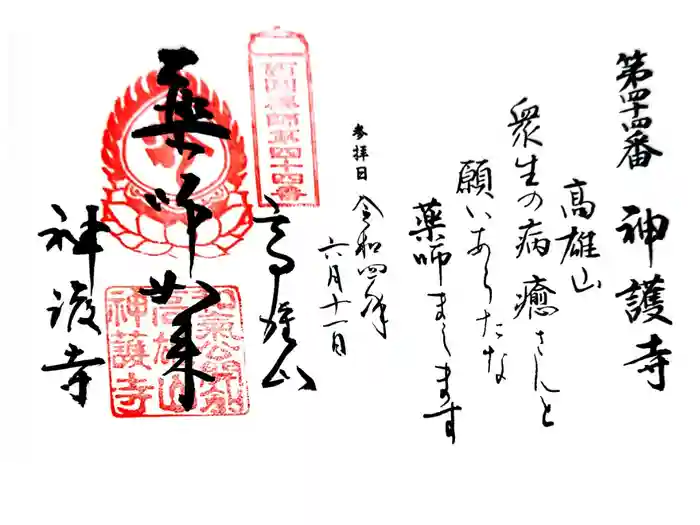 第四十四番 神護寺
高雄山
衆生の病癒さんと
願いあらたな
薬師まします
参拝日 令和四年
六月十一日
西国薬師第四十四番
高雄山
薬師如来
神護寺
高雄山
神護寺